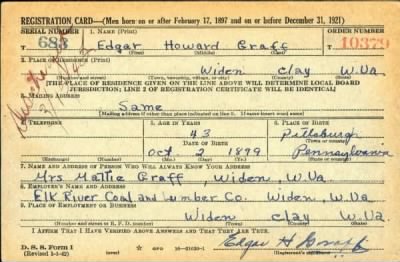 REGISTRATION CARD—(Men born on or after February 17, 1897 and on or before December 31, 1921)
SERIAL NUMBER 1. NAME (Print) ORDER NUMBER
683 Edgar Howard Graff 10379
(First) (Middle) (Last)
2. PLACE OF RESIDENCE (Print)
Widen Clay W.Va
(Number and street) (Town, township, village, or city) (County) (State)
[THE PLACE OF RESIDENCE GIVEN ON THE LINE ABOVE WILL DETERMINE LOCAL BOARD
JURISDICTION; LINE 2 OF REGISTRATION CERTIFICATE WILL BE IDENTICAL]
3. MAILING ADDRESS
Same
[Mailing address if other than place indicated on line 2. If same insert word same]
4. TELEPHONE 5. AGE IN YEARS 6. PLACE OF BIRTH
43 Pittsburgh
DATE OF BIRTH (Town or county)
Oct 2 1899 Pennsylvania
(Exchange) (Number) (Mo.) (Day) (Yr.) (State or country)
7. NAME AND ADDRESS OF PERSON WHO WILL ALWAYS KNOW YOUR ADDRESS
Mrs Mattie Graff, Widen, W.Va
8. EMPLOYER'S NAME AND ADDRESS
Elk River Coal and Lumber Co. Widen, W.Va
9. PLACE OF EMPLOYMENT OR BUSINESS
Widen Clay W.Va
(Number and street or R. F. D. number) (Town) (County) (State)
I AFFIRM THAT I HAVE VERIFIED ABOVE ANSWERS AND THAT THEY ARE TRUE.
D. S. S. Form 1
(Revised 1-1-42) (over) GPO 16—21630-1 Edgar H Graff